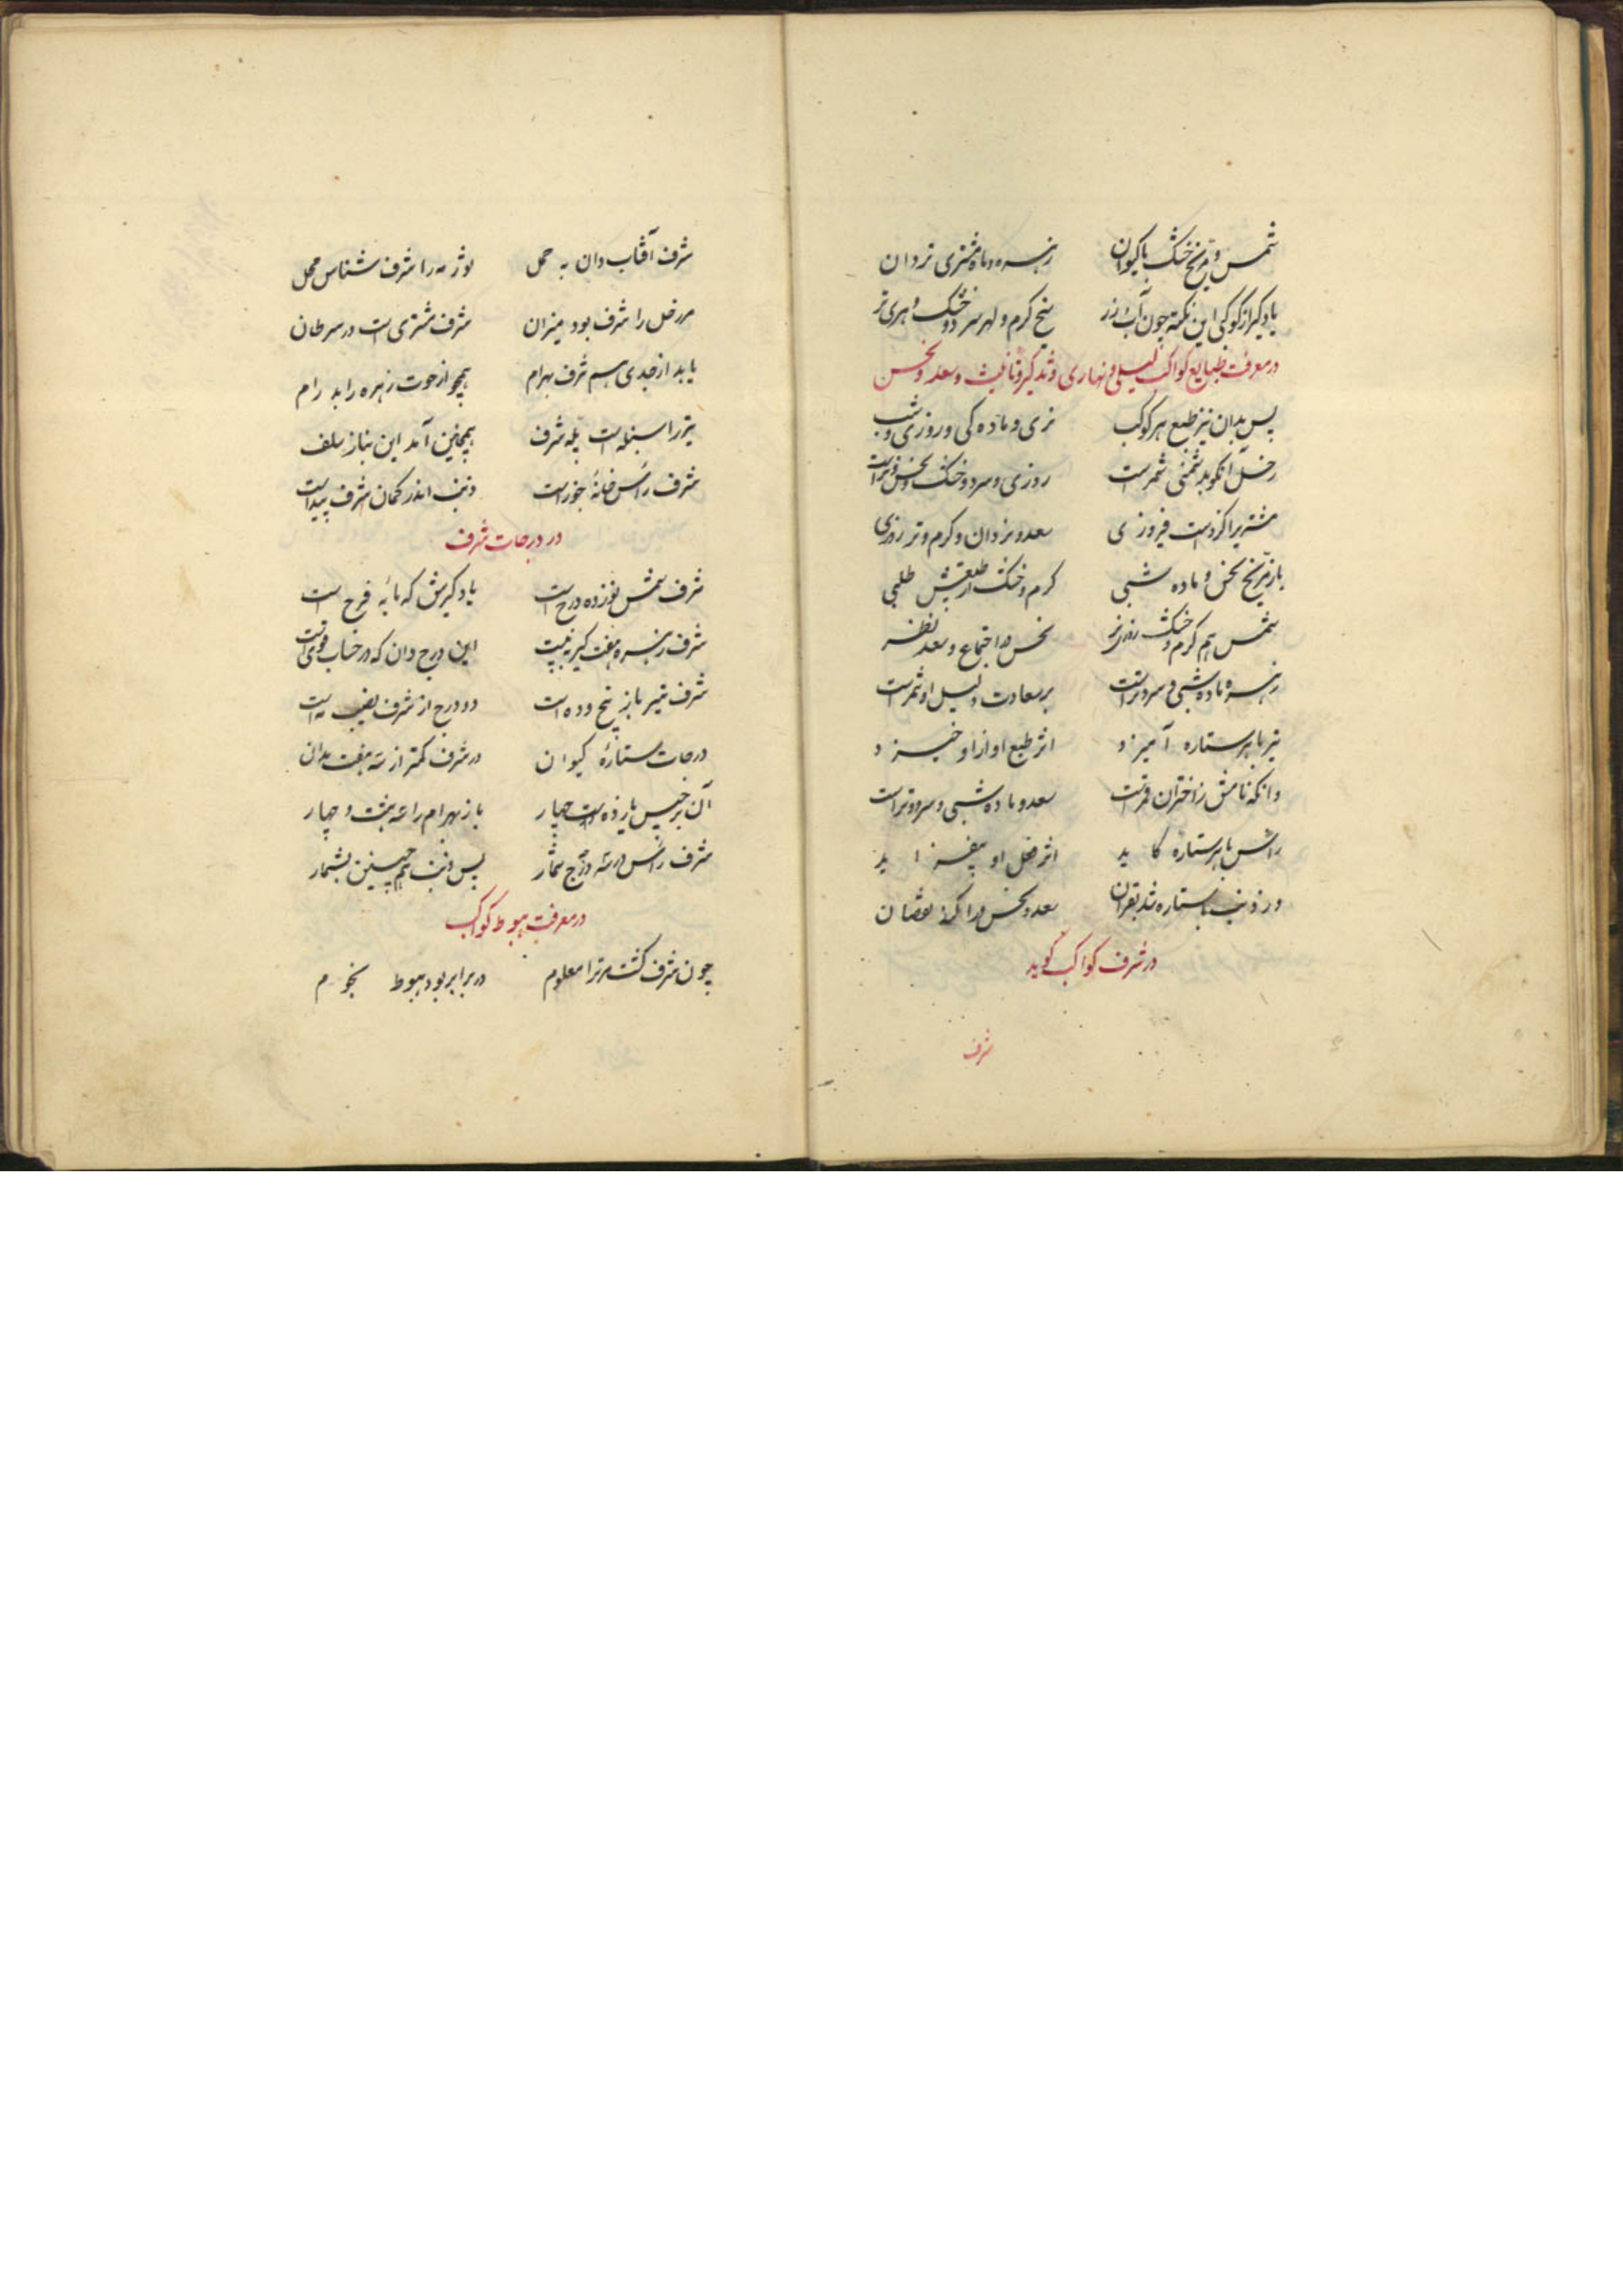 شمس و مریخ خشک با کیوان زهره و ماه و مشتری تر دان
یادگیر از کوکبی این نکته چون آب زر یخ کرم و لهر سرد و خشک و هری تر
در معرفت طبایع کواکب لیلی و نهاری و تذکیر و تانیث و سعد و نحس
پس بدان نیز طبع هر کوکب نری و ماده کی و روزی و شب
زحل آنکو بدشمنی ثمرست روزی و سرد و خشک و نحس و نرست
مشتریرا کزوست فیروزی سعد و نر دان و کرم و تر روزی
باز مریخ نحس و ماده شبی کرم و خشک از طبیعتش طلبی
شمس هم کرم و خشک روزی نر نحس در اجتماع و سعد نظر
زهره ماده شبی و سرد و ترست بر سعادت دلیل او ثمرست
تیر با هر ستاره آمیزد اثر طبع او ازو خیزد
وانکه نامش ز اختران قمرست سعد و ماده شبی و سرد و ترست
راس با هر ستاره کاید اثر فعل او بیفزاید
ور ذنب با ستاره شد بقران سعد و نحس ورا کند نقصان
در شرف کواکب گوید
شرف
شرف آفتاب دان به حمل ثور مه را شرف شناس محل
مر زحل را شرف بود میزان شرف مشتری است در سرطان
یابد از جدی هم شرف بهرام همچو از حوت زهره را بد رام
تیر را سنبله است پله شرف همچنین آمد این بنا ز سلف
شرف راس خانهٔ جوزاست ذنب اندر کمان شرف پیداست
در درجات شرف
شرف شمس نوزده درج است یاد گیرش که مایه فرح است
شرف زهره هفت گیر ز بیست این درج دان که در حساب قویست
شرف تیر باز پنج و ده است دو درج از شرف نصیب مه است
درجات ستارهٔ کیوان در شرف کمتر از سه هفت بدان
آن برجیس یازده است چهار باز بهرام راسه هشت و چهار
شرف راس در سه درج شمار پس ذنب هم چنین بشمار
در معرفت هبوط کواکب
چون شرف گشت مر ترا معلوم در برابر بود هبوط نجوم